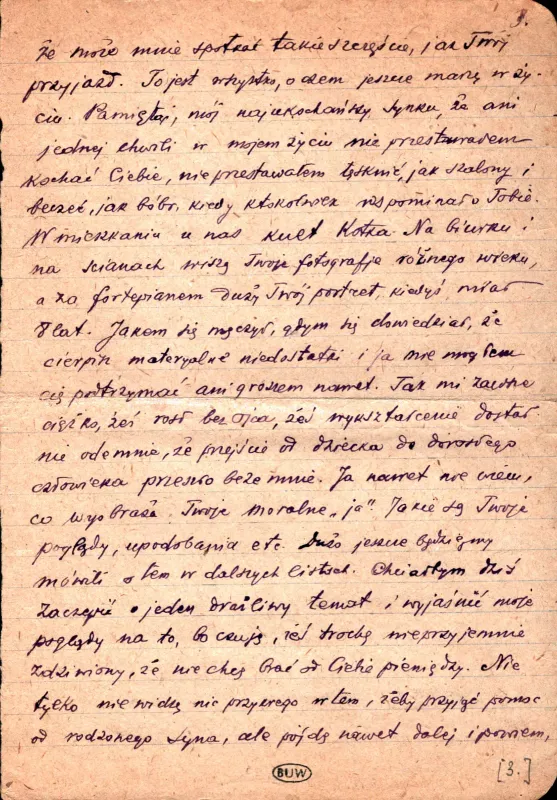 3.
że może mnie spotkać takie szczęście, jak Twój
przyjazd. To jest wszystko, o czem jeszcze marzę w ży-
ciu. Pamiętaj, mój najukochańszy synku, że ani
jednej chwili w mojem życiu nie przestawałem
kochać Ciebie, nie przestawałem tęsknić, jak szalony i
beczeć, jak bóbr, kiedy ktokolwiek wspominał o Tobie.
W mieszkaniu u nas kult Kotka. Na biurku i
na ścianach wiszą Twoje fotografje różnego wieku,
a za fortepianem duży Twój portret, kiedyś miał
8 lat. Jakem się męczył, gdym się dowiedział, że
cierpisz materyalne niedostatki i ja nie mogłem
cię podtrzymać ani groszem nawet. Tak mi zawsze
ciężko, żeś rósł bez ojca, żeś wykształcenie dostał
nie odemnie, że przejście od dziecka do dorosłego
człowieka przeszło bezemnie. Ja nawet nie wiem,
co wyobraża Twoje moralne „ja". Jakie są Twoje
poglądy, upodobania etc. Dużo jeszcze będziemy
mówili o tem w dalszych listach. Chciałbym dziś
zaczepić o jeden drażliwy temat i wyjaśnić moje
poglądy na to, bo czuję, żeś trochę nieprzyjemnie
zdziwiony, że nie chcę brać od Ciebie pieniędzy. Nie
tylko nie widzę nic przykrego w tem, żeby przyjąć pomoc
od rodzonego syna, ale pójdę nawet dalej i powiem,
BUW
[3.]